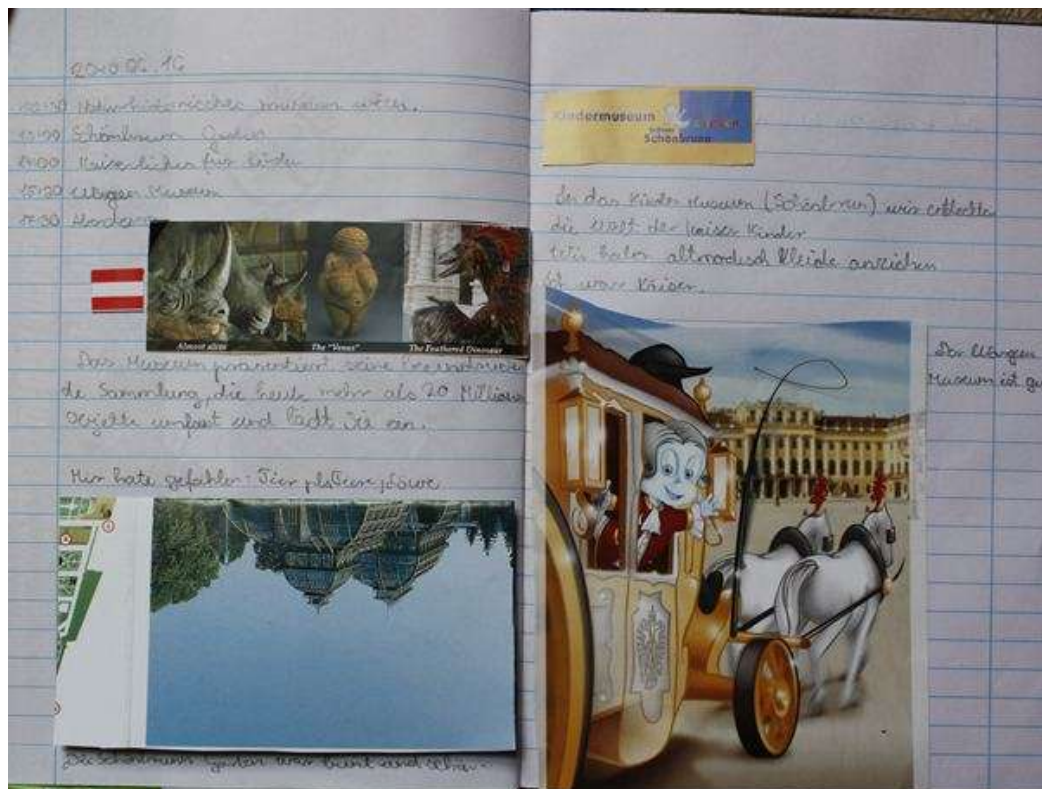 2010.06.16
Naturhistorisches museum wien.
Schönbrunn Garten
14:00 Kaiserliches für Kinder
15:30 Wagen Museum
17:30
Almost alive
The "Venus"
The Feathered Dinosaur
Das Museum präsentiert seine
de Sammlung, die heute mehr als 20 Millionen
Objekte umfast und lädt Sie ein.
Mir hate gefahlen:
Der Schönbrunn Garten war bunt und schön.
Kindermuseum
Schloss
Schönbrunn
In das Kinder Museum (Schönbrunn) wir entdeckten
die Welt der Kaiser Kinder
Wir haben altmodisch Kleide anziehen
Ich war Kaiser.
Der Wangen
Museum ist